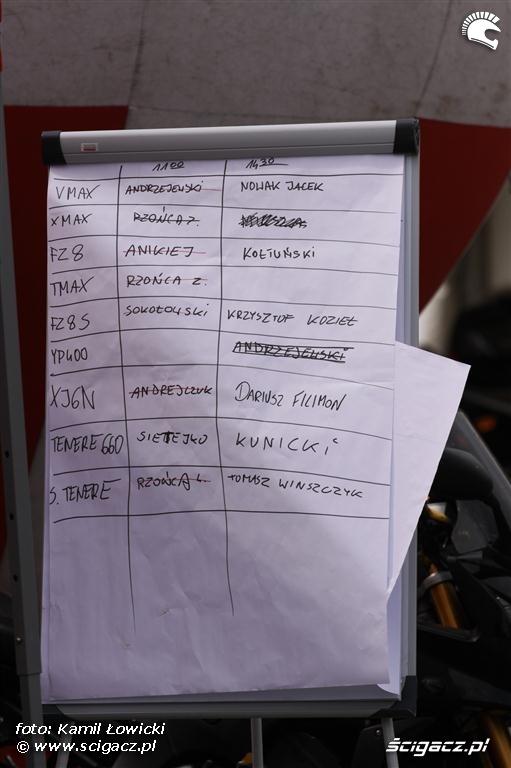 11 00 14 30
VMAX ANDRZEJEWSKI NOWAK JACEK
XMAX RZOŃCA Z.
FZ8 ANIKIEJ KOŁTUŃSKI
TMAX RZOŃCA Z.
FZ8S SOKOŁOWSKI KRZYSZTOF KOZIEŁ
YP400 ANDRZEJEWSKI
XJ6N ANDREJCZUK DARIUSZ FILIMON
TENERE 660 SIETEJKO KUNICKI
S. TENERE RZOŃCA Ł. TOMASZ WINSZCZYK
foto: Kamil Łowicki
© www.scigacz.pl
ścigacz.pl